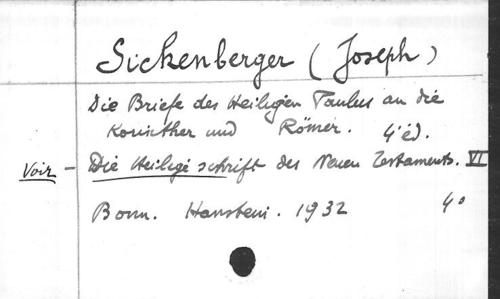 Sickenberger (Joseph)
Die Briefe des Heiligen Paulus an die
Korinther und Römer. 4 éd.
Voir - Die Heilige schrift des Neuen Testaments. VI
Bonn. Hanstein. 1932 4°